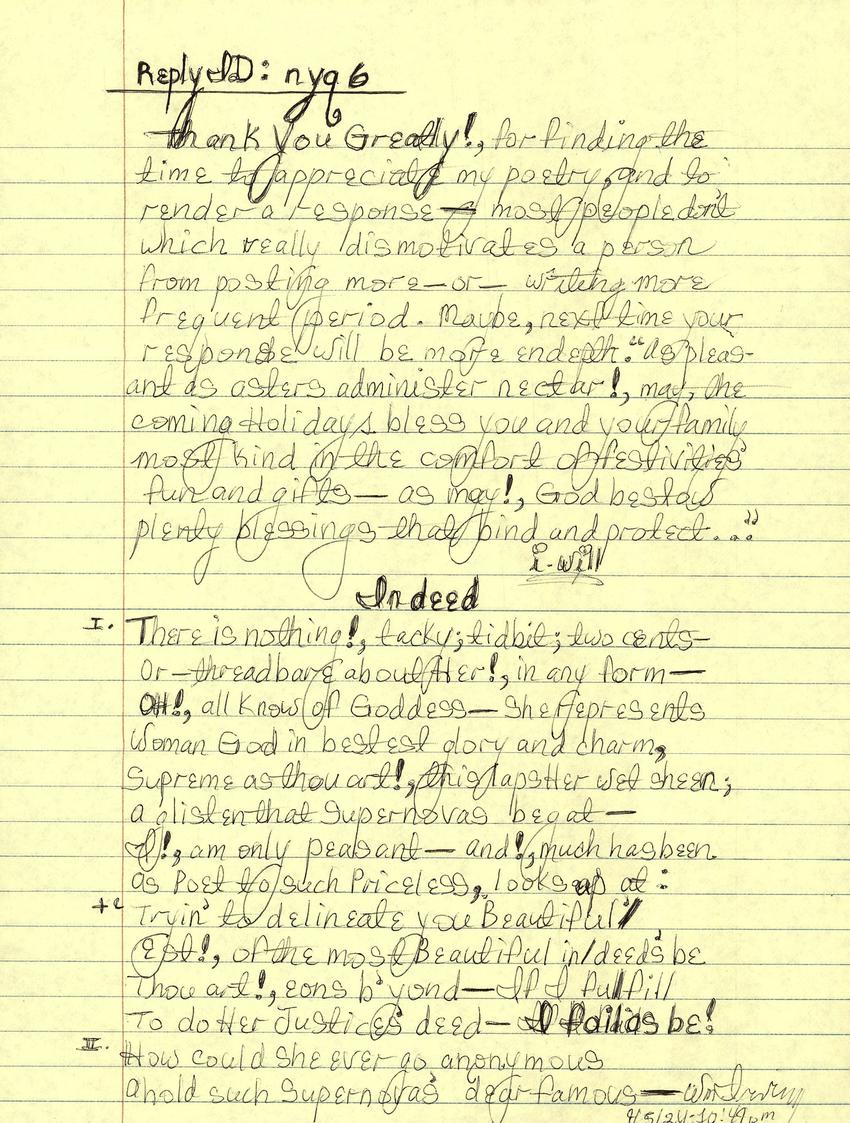 Reply ID: nyq6
Thank You Greatly!, for finding the
time to appreciate my poetry, and to
render a response — most people don't
which really dismotivates a person
from posting more—or— writing more
frequent period. Maybe, next time your
response will be more endepth. "As pleas-
ant as asters administer nectar!, may, the
coming Holidays bless you and your family
most kind in the comfort of festivities
fun and gifts— as may!, God bestow
plenty blessings that bind and protect..."
i-will
Indeed
I. There is nothing!, tacky; tidbit; two cents—
Or—threadbare about Her!, in any form—
OH!, all know of Goddess— She represents
Woman God in bestest glory and charm,
Supreme as thou art!, this laps Her wet sheen;
a glisten that Supernovas begat—
I!, am only peasant— and!, much has been
as Poet to such Priceless, looks up at:
Tryin' to delineate you Beautiful/
Est!, of the most Beautiful in/deeds be
Thou art!, eons b'yond—If I fulfill
To do Her Justices deed— be!
II. How could She ever go anonymous
Ahold such Supernovas dear famous—